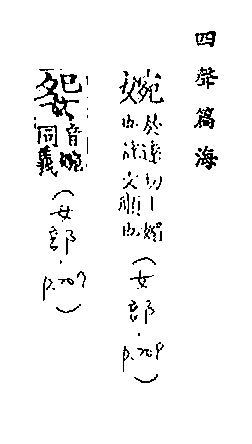 四聲篇海
婉於遠切丨媚也說文順也（女部．p.709）
妴音婉同義（女部．p.707）